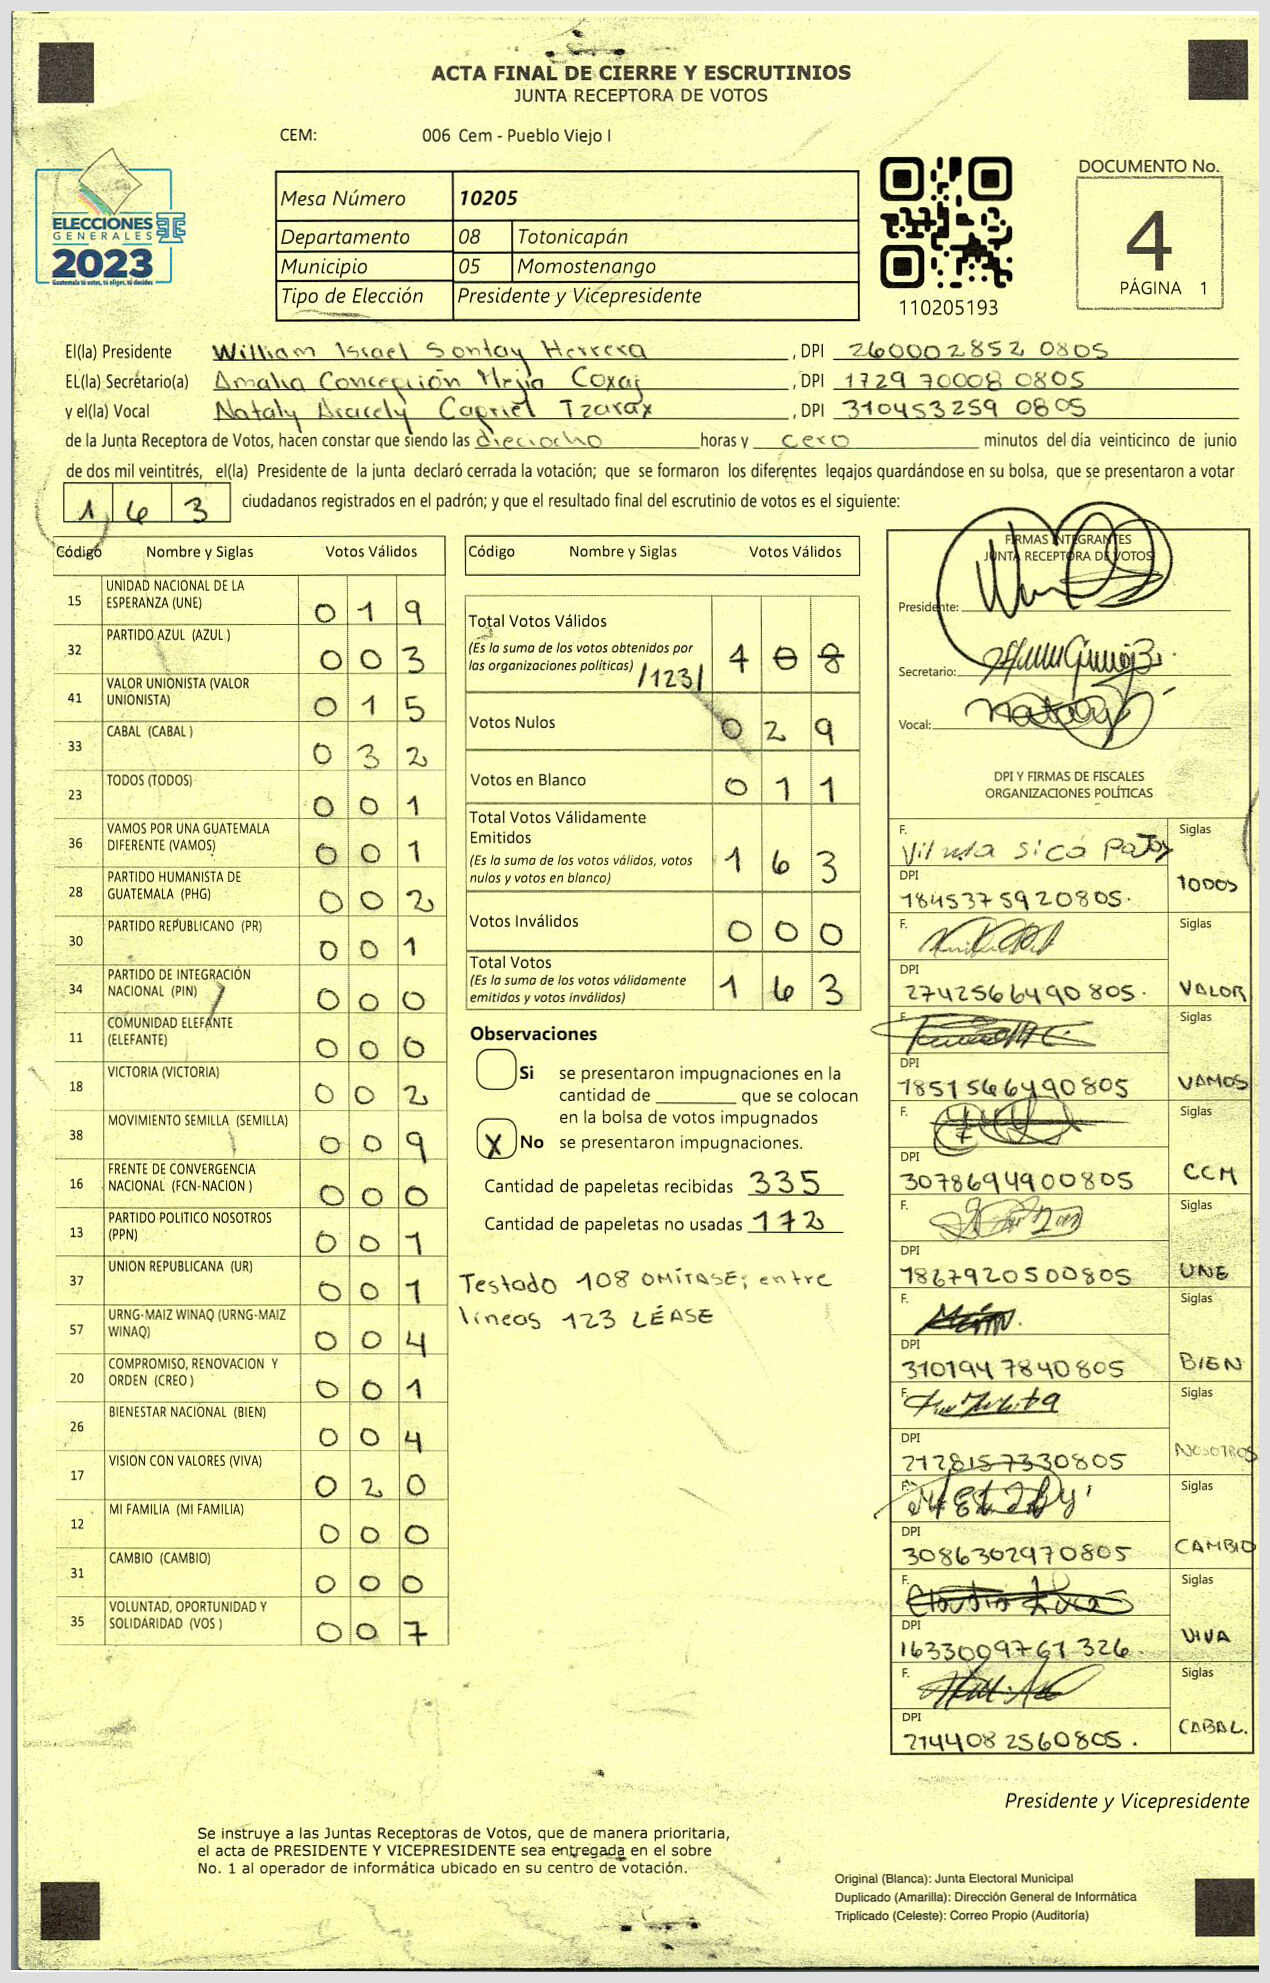 ACTA FINAL DE CIERRE Y ESCRUTINIOS
JUNTA RECEPTORA DE VOTOS
CEM: 006 Cem - Pueblo Viejo I
ELECCIONES
GENERALES
2023
Guatemala tú votas, tú eliges, tú decides
Mesa Número 10205
Departamento 08 Totonicapán
Municipio 05 Momostenango
Tipo de Elección Presidente y Vicepresidente
110205193
DOCUMENTO No.
4
PÁGINA 1
El(la) Presidente William Israel Sontay Herrera , DPI 260002852 0805
EL(la) Secretario(a) Amalia Concepción Mejia Coxaj , DPI 1729 70008 0805
y el(la) Vocal Nataly Aracely Capriel Tzarax , DPI 310453259 0805
de la Junta Receptora de Votos, hacen constar que siendo las dieciocho horas y cero minutos del día veinticinco de junio
de dos mil veintitrés, el(la) Presidente de la junta declaró cerrada la votación; que se formaron los diferentes legajos guardándose en su bolsa, que se presentaron a votar
163 ciudadanos registrados en el padrón; y que el resultado final del escrutinio de votos es el siguiente:
Código Nombre y Siglas Votos Válidos
15 UNIDAD NACIONAL DE LA ESPERANZA (UNE) 019
32 PARTIDO AZUL (AZUL ) 003
41 VALOR UNIONISTA (VALOR UNIONISTA) 015
33 CABAL (CABAL ) 032
23 TODOS (TODOS) 001
36 VAMOS POR UNA GUATEMALA DIFERENTE (VAMOS) 001
28 PARTIDO HUMANISTA DE GUATEMALA (PHG) 002
30 PARTIDO REPUBLICANO (PR) 001
34 PARTIDO DE INTEGRACIÓN NACIONAL (PIN) 000
11 COMUNIDAD ELEFANTE (ELEFANTE) 000
18 VICTORIA (VICTORIA) 002
38 MOVIMIENTO SEMILLA (SEMILLA) 009
16 FRENTE DE CONVERGENCIA NACIONAL (FCN-NACION ) 000
13 PARTIDO POLITICO NOSOTROS (PPN) 001
37 UNION REPUBLICANA (UR) 001
57 URNG-MAIZ WINAQ (URNG-MAIZ WINAQ) 004
20 COMPROMISO, RENOVACION Y ORDEN (CREO ) 001
26 BIENESTAR NACIONAL (BIEN) 004
17 VISION CON VALORES (VIVA) 020
12 MI FAMILIA (MI FAMILIA) 000
31 CAMBIO (CAMBIO) 000
35 VOLUNTAD, OPORTUNIDAD Y SOLIDARIDAD (VOS ) 007
Código Nombre y Siglas Votos Válidos
Total Votos Válidos
(Es la suma de los votos obtenidos por
las organizaciones políticas) /123/ 108
Votos Nulos 029
Votos en Blanco 011
Total Votos Válidamente
Emitidos
(Es la suma de los votos válidos, votos
nulos y votos en blanco) 163
Votos Inválidos 000
Total Votos
(Es la suma de los votos válidamente
emitidos y votos inválidos) 163
Observaciones
Si se presentaron impugnaciones en la
cantidad de ________ que se colocan
en la bolsa de votos impugnados
X No se presentaron impugnaciones.
Cantidad de papeletas recibidas 335
Cantidad de papeletas no usadas 172
Testado 108 OMÍTASE; entre
líneas 123 LÉASE
FIRMAS INTEGRANTES
JUNTA RECEPTORA DE VOTOS
Presidente:
Secretario:
Vocal:
DPI Y FIRMAS DE FISCALES
ORGANIZACIONES POLÍTICAS
F. Vilma Sicá Siglas
DPI 1845375920805. TODOS
F. Siglas
DPI 2742566490805. VALOR
F. Siglas
DPI 1851566490805 VAMOS
F. Siglas
DPI 3078694900805 CCM
F. Siglas
DPI 1867920500805 UNE
F. Siglas
DPI 3101947840805 BIEN
F. Siglas
DPI 2128157330805 NOSOTROS
F. Siglas
DPI 3086302970805 CAMBIO
F. Siglas
DPI 1633009761326. VIVA
F. Siglas
DPI 2144082560805. CABAL.
Presidente y Vicepresidente
Se instruye a las Juntas Receptoras de Votos, que de manera prioritaria,
el acta de PRESIDENTE Y VICEPRESIDENTE sea entregada en el sobre
No. 1 al operador de informática ubicado en su centro de votación.
Original (Blanca): Junta Electoral Municipal
Duplicado (Amarilla): Dirección General de Informática
Triplicado (Celeste): Correo Propio (Auditoría)